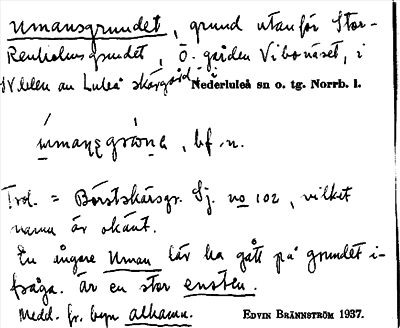 Umansgrundet, grund utanför Stor-
Renholmsgrundet, Ö. gården Vibonäset, i
delen av Luleå skärgård i Nederluleå sn o. tg. Norrb. l.
bf. n.
Trol. = Börstskärsgr. Sj. no 102, vilket
namn är okänt.
En ångare Uman lär ha gått på grundet i-
fråga. är en stor ensten.
Medd. fr. byn alhamn. EDVIN BRÄNNSTRÖM 1937.